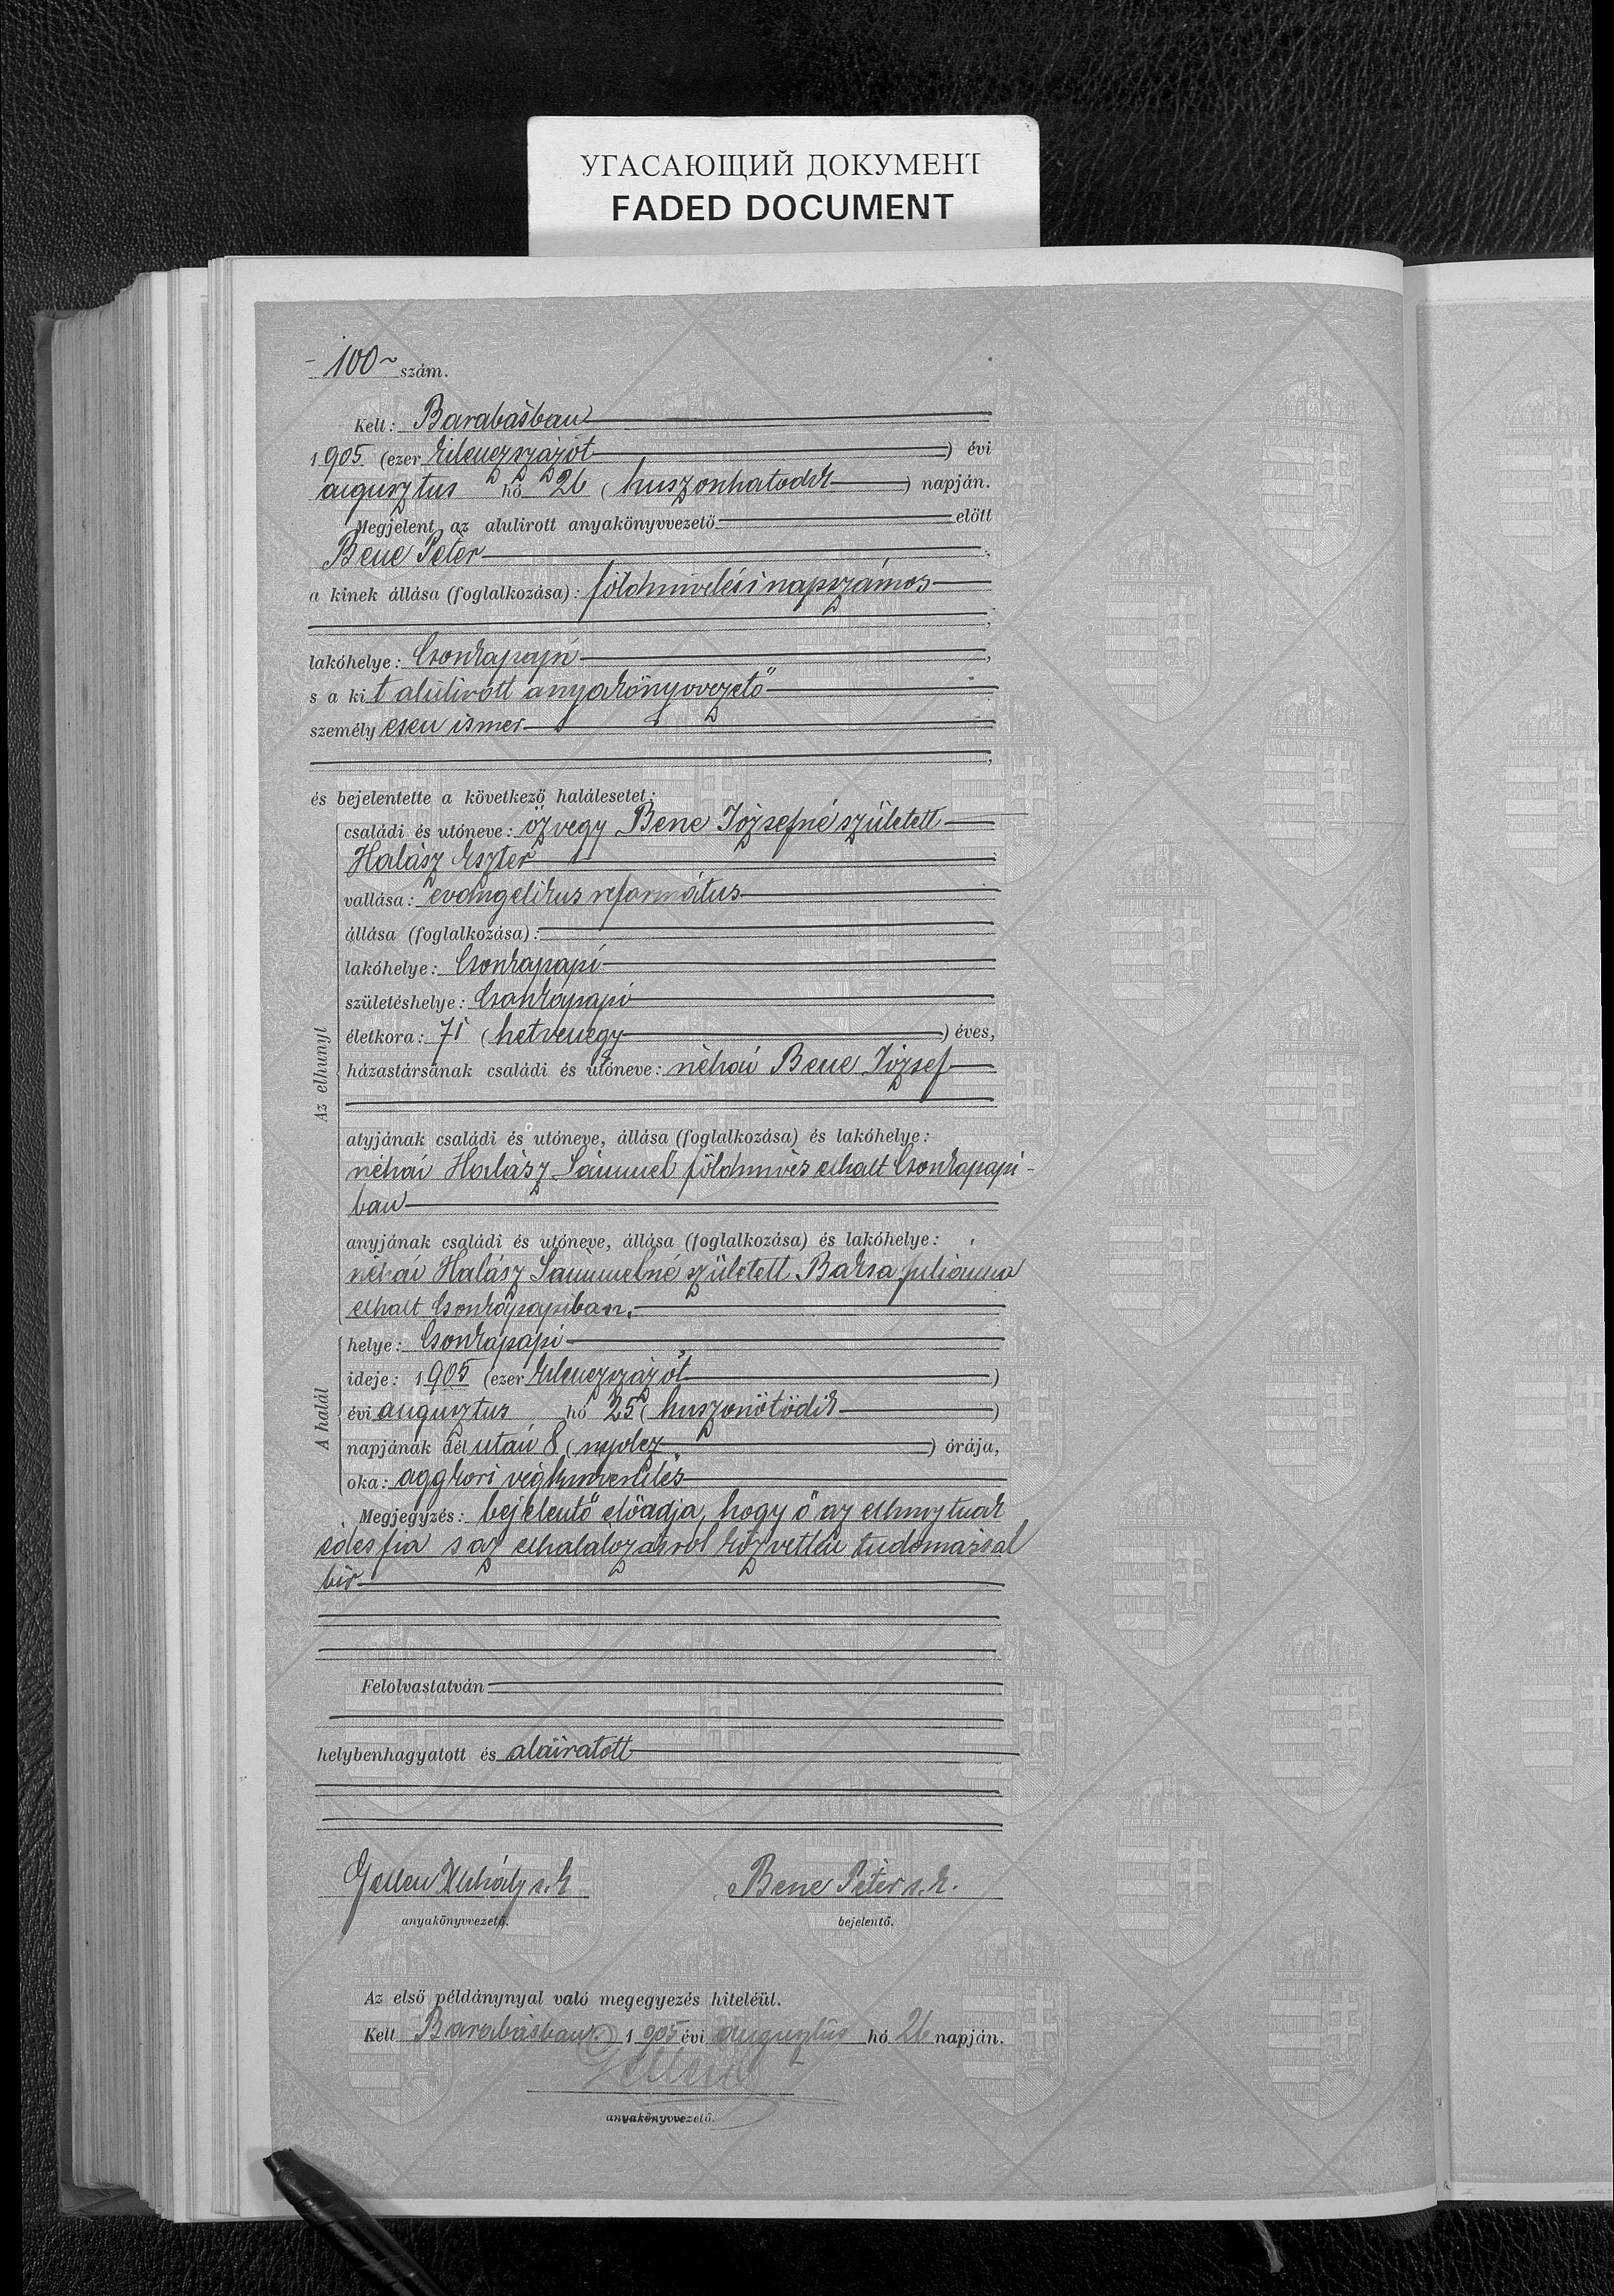 УГАСАЮЩИЙ ДОКУМЕНТ
FADED DOCUMENT
- 100 ~ szám.
Kelt: Barabásban
1905 (ezer kilenczszázöt ) évi
augusztus hó 26 (huszonhatodik ) napján.
Megjelent az alulirott anyakönyvvezető előtt
Bene Péter ,
a kinek állása (foglalkozása): földmivelési napszámos
,
lakóhelye: Csonkapapi ,
s a kit alulirott anyakönyvvezető
személyesen ismer
,
és bejelentette a következő halálesetet:
Az elhunyt
családi és utóneve: özvegy Bene Józsefné született
Halász Eszter
vallása: evangelikus református
állása (foglalkozása):
lakóhelye: Csonkapapi
születéshelye: Csonkapapi
életkora: 71 (hetvenegy ) éves,
házastársának családi és utóneve: néhai Bene József
atyjának családi és utóneve, állása (foglalkozása) és lakóhelye:
néhai Halász Sámuel földmives elhalt Csonkapapi-
ban
anyjának családi és utóneve, állása (foglalkozása) és lakóhelye:
néhai Halász Sámuelné született Baksa Juliánna
elhalt Csonkapapiban.
A halál
helye: Csonkapapi
ideje: 1905 (ezer kilenczszázöt )
évi augusztus hó 25 (huszonötödik )
napjának dél után 8 (nyolcz ) órája,
oka: aggkori végkimerülés
Megjegyzés: bejelentő előadja, hogy ő az elhunytnak
édes fia s az elhalálozásról közvetlen tudomással
bir
Felolvastatván
helybenhagyatott és aláiratott
Gellen Mihály s. k. Bene Péter s. k.
anyakönyvvezető. bejelentő.
Az első példánynyal való megegyezés hiteléül.
Kelt Barabásban 1905 évi augusztus hó 26 napján.
Gellen
anyakönyvvezető.